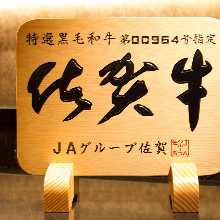 特選黒毛和牛 第00964号指定
佐賀牛
JAグループ佐賀